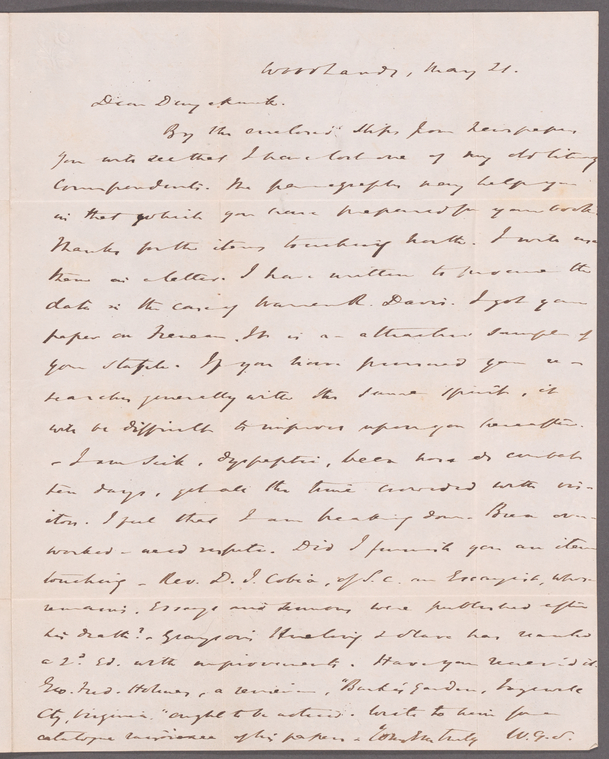 Woodlands, May 21.
Dear Duyckinck.
By the enclosed slips from newspaper
you will see that I have lost one of my old literary
Correspondents. The paragraphs may help you
in that which you have prepared for your book.
Thanks for the items touching North. I will use
them in a letter. I have written to procure the
data in the case of Warren R. Davis. I got your
paper on Freneau. It is an attractive sample of
your staple. If you have pursued your re-
searches generally with the same spirit, it
will be difficult to improve upon you hereafter.
- I am sick, dyspeptic, been hors de combat
ten days, yet all the time crowded with vis-
itors. I feel that I am breaking down. Been over-
worked - need respite. Did I furnish you an item
touching - Rev. D. J. Cobia, of S. C. an Essayist, whose
remains, Essays and sermons were published after
his death? - Grayson's Hireling & Slave has reached
a 2d. Ed. with improvements. Have you received it.
Geo. Fred. Holmes, a reviewer, "Burke's Garden, Tazewell
Cty, Virginia" ought to be noticed. Write to him for a
catalogue of his papers - Yours truly W. G. S.